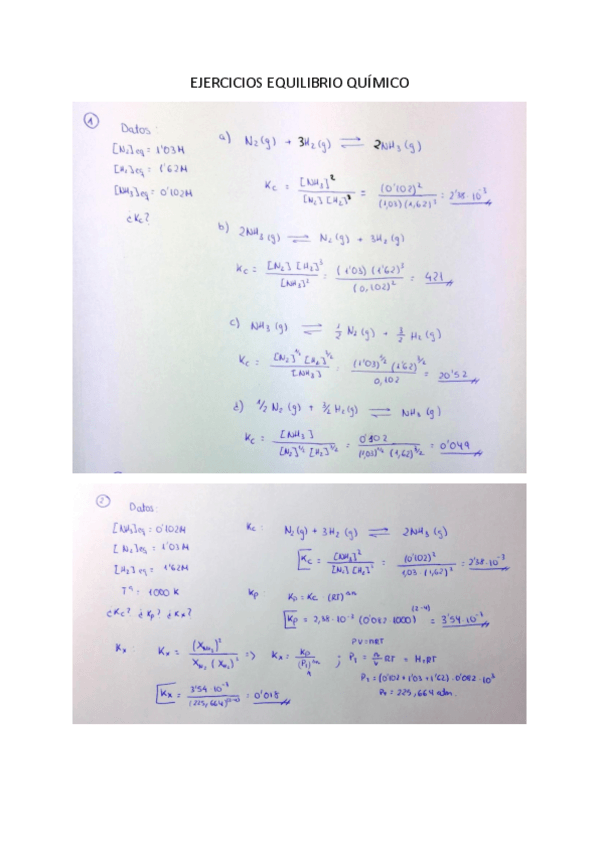 EJERCICIOS EQUILIBRIO QUÍMICO
1
Datos:
[N₂]eq = 1'03M
[H₂]eq = 1'62M
[NH₃]eq = 0'102M
¿Kc?
a) N₂(g) + 3H₂(g) ⇌ 2NH₃(g)
Kc = [NH₃]² / [N₂][H₂]³ = (0'102)² / (1,03)(1,62)³ = 2'38·10⁻³
b) 2NH₃(g) ⇌ N₂(g) + 3H₂(g)
Kc = [N₂][H₂]³ / [NH₃]² = (1'03)(1'62)³ / (0,102)² = 421
c) NH₃(g) ⇌ 1/2 N₂(g) + 3/2 H₂(g)
Kc = [N₂]^1/2 [H₂]^3/2 / [NH₃] = (1'03)^1/2 (1'62)^3/2 / 0,102 = 20'52
d) 1/2 N₂(g) + 3/2 H₂(g) ⇌ NH₃(g)
Kc = [NH₃] / [N₂]^1/2 [H₂]^3/2 = 0'102 / (1,03)^1/2 (1,62)^3/2 = 0'049
2
Datos:
[NH₃]eq = 0'102M
[N₂]eq = 1'03M
[H₂]eq = 1'62M
Tª = 1000 K
¿Kc? ¿Kp? ¿Kx?
Kc: N₂(g) + 3H₂(g) ⇌ 2NH₃(g)
Kc = [NH₃]² / [N₂][H₂]³ = (0'102)² / 1,03·(1,62)³ = 2'38·10⁻³
Kp: Kp = Kc·(RT)^Δn
Kp = 2,38·10⁻³ (0'082·1000)^(2-4) = 3'54·10⁻⁷
Kx: Kx = (X_NH₃)² / X_N₂ (X_H₂)³ => Kx = Kp / (P_T)^Δn ;
PV=nRT
P_T = n/V RT = M·RT
P_T = (0'102+1'03+1'62)·0'082·10³
P_T = 225,664 atm.
Kx = 3'54·10⁻⁷ / (225,664)^(2-4) = 0'018